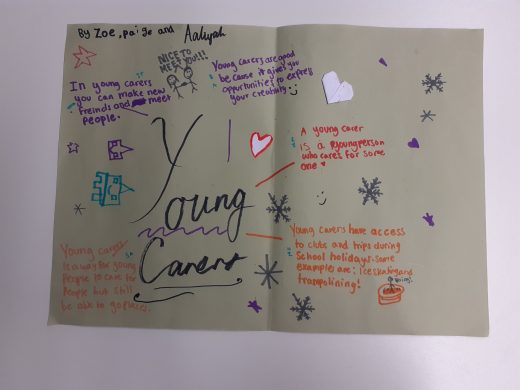 By Zoe, paige and Aaliyah
NICE TO
MEET YOU!!!
In young carers
you can make new
freinds and meet
people.
Young carers are good
because it gives you
opportunities to express
your creativity
A young carer
is a young person
who cares for some
one
Young
Carers
Young carers have access
to clubs and trips during
School holidays. Some
examples are: Iceskating and
trampolining!
Young carers
is a way for young
people to care for
people but still
be able to go places.